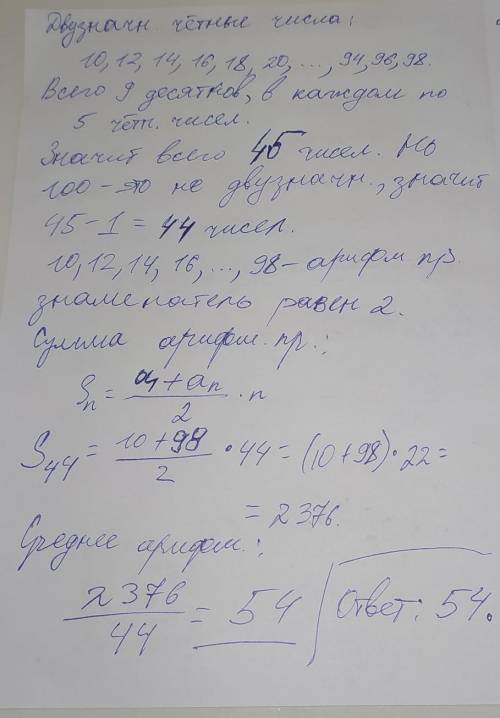 Двузначн. чётные числа:
10, 12, 14, 16, 18, 20, ..., 94, 96, 98.
Всего 9 десятков, в каждом по
5 чётн. чисел.
Значит всего 45 чисел. Но
100 – это не двузначн., значит
45 – 1 = 44 чисел.
10, 12, 14, 16, ..., 98 – арифм пр.
знаменатель равен 2.
Сумма арифм. пр.:
Sn = (a1 + an)/2 · n
S44 = (10 + 98)/2 · 44 = (10 + 98) · 22 =
= 2376.
Среднее арифм.:
2376/44 = 54 Ответ: 54.